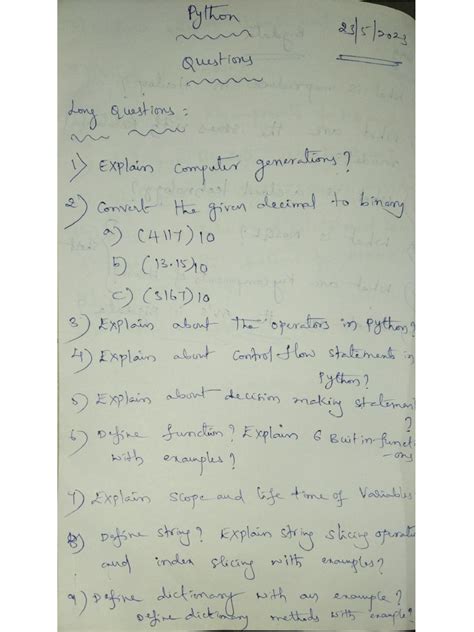 Python
23/5/2023
Questions
Long Questions :
1) Explain computer generations?
2) Convert the given decimal to binary
a) (4117)10
b) (13.15)10
c) (3167)10
3) Explain about the operators in python?
4) Explain about control flow statements in
Python?
5) Explain about decision making statement
?
6) Define function? Explain 6 Buit in-funct
-ons
with examples?
7) Explain scope and life time of Variables
8) Define string? Explain string slicing operati
and index slicing with examples?
9) Define dictionary with an example?
Define dictionary methods with example?